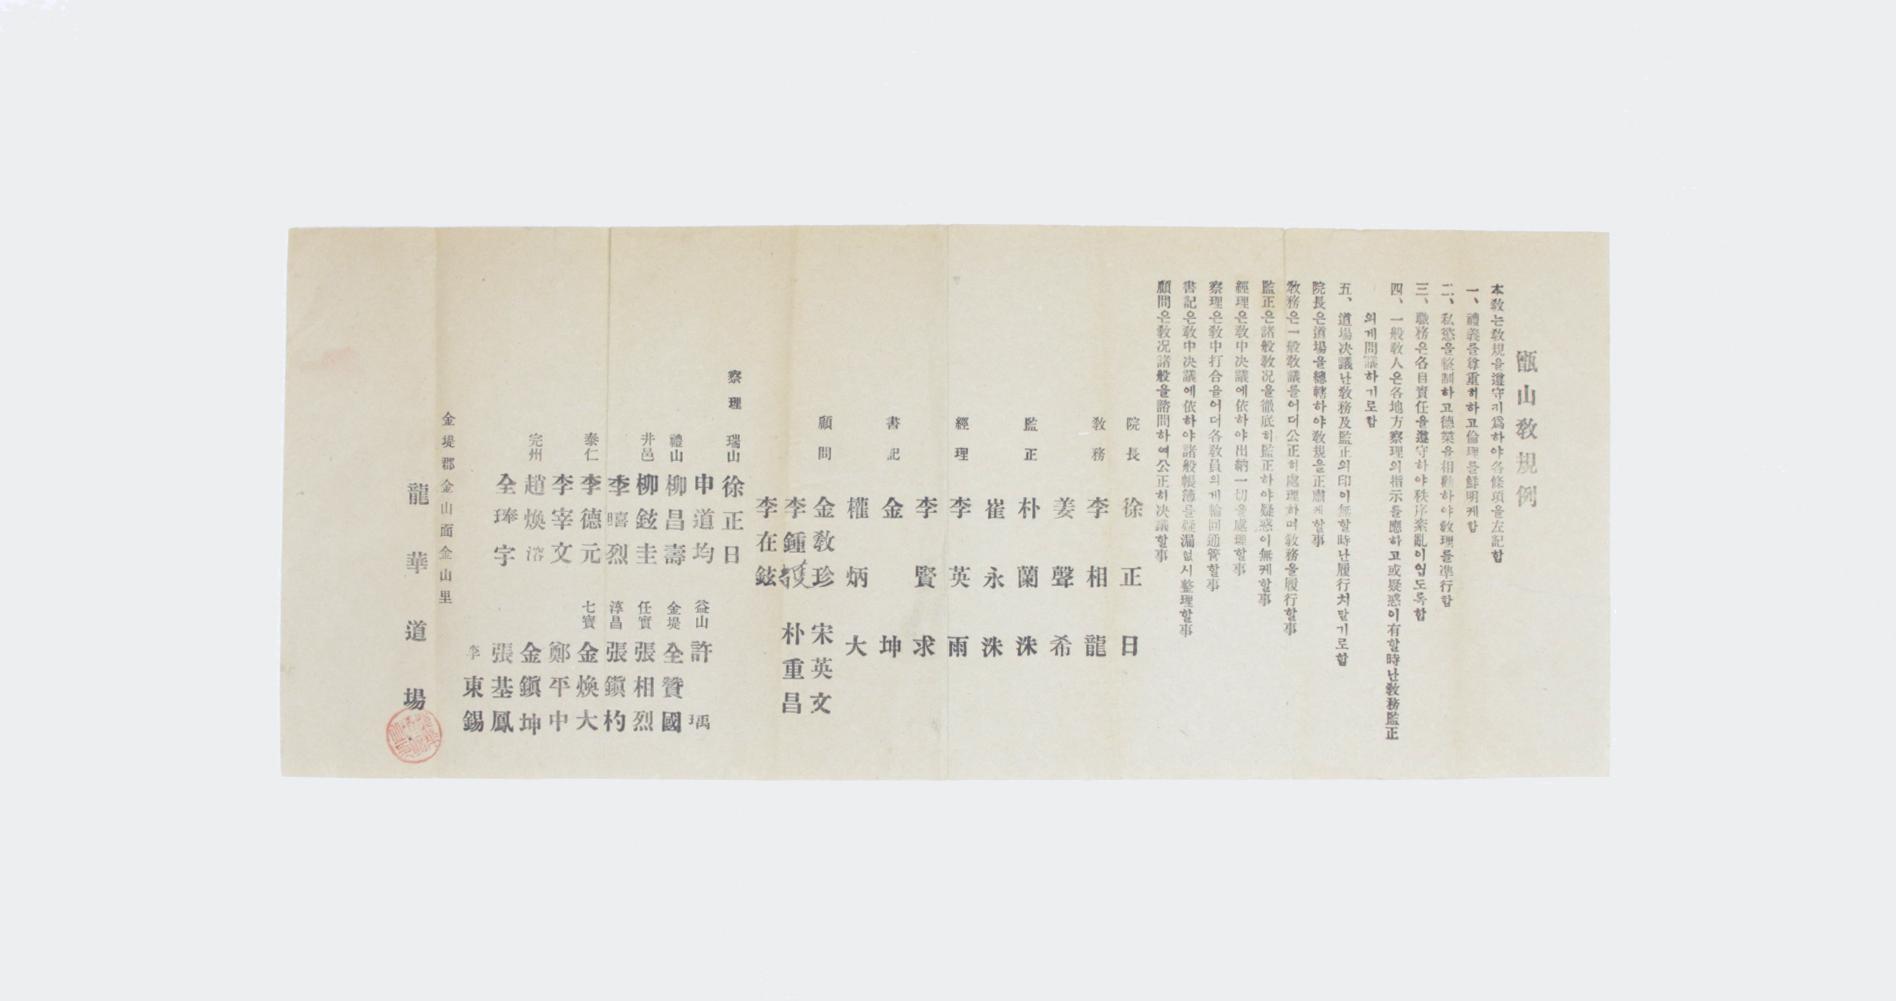 甑山敎規例
本敎는敎規을遵守키爲하야各條項을左記함
一、禮義를尊重히하고倫理를鮮明케함
二、私慾을整制하고德業을相勸하야敎理를準行함
三、職務은各自責任을遵守하야秩序紊亂이업도록함
四、一般敎人은各地方察理의指示를應하고或疑惑이有할時난敎務監正
의게問議하기로함
五、道場决議난敎務及監正의印이無할時난履行치말기로함
院長은道場을總轄하야敎規을正肅케할事
敎務은一般敎議를어더公正히處理하며敎務을履行할事
監正은諸般敎况을徹底히監正하야疑惑이無케할事
經理은敎中决議에依하야出納一切을處理할事
察理은敎中打合을어더各敎員의게輪回通管할事
書記은敎中决議에依하야諸般帳簿를疑漏업시整理할事
顧問은敎况諸般을諮問하여公正히决議할事
院長 徐正日
敎務 李相龍
姜聲希
監正 朴蘭洙
崔永洙
經理 李英雨
李賢求
書記 金坤
權炳大
顧問 金敎珍 宋英文
李鍾 朴重昌
李在鉉
察理 瑞山 徐正日
申道均 益山 許瑀
禮山 柳昌壽 金堤 全贊國
井邑 柳鉉圭 任實 張相烈
李暿烈 淳昌 張鎭杓
泰仁 李德元 七寶 金煥大
李宰文 鄭平中
完州 趙煥溶 金鎭坤
全琫宇 張基鳳
李東錫
金堤郡金山面金山里
龍華道場